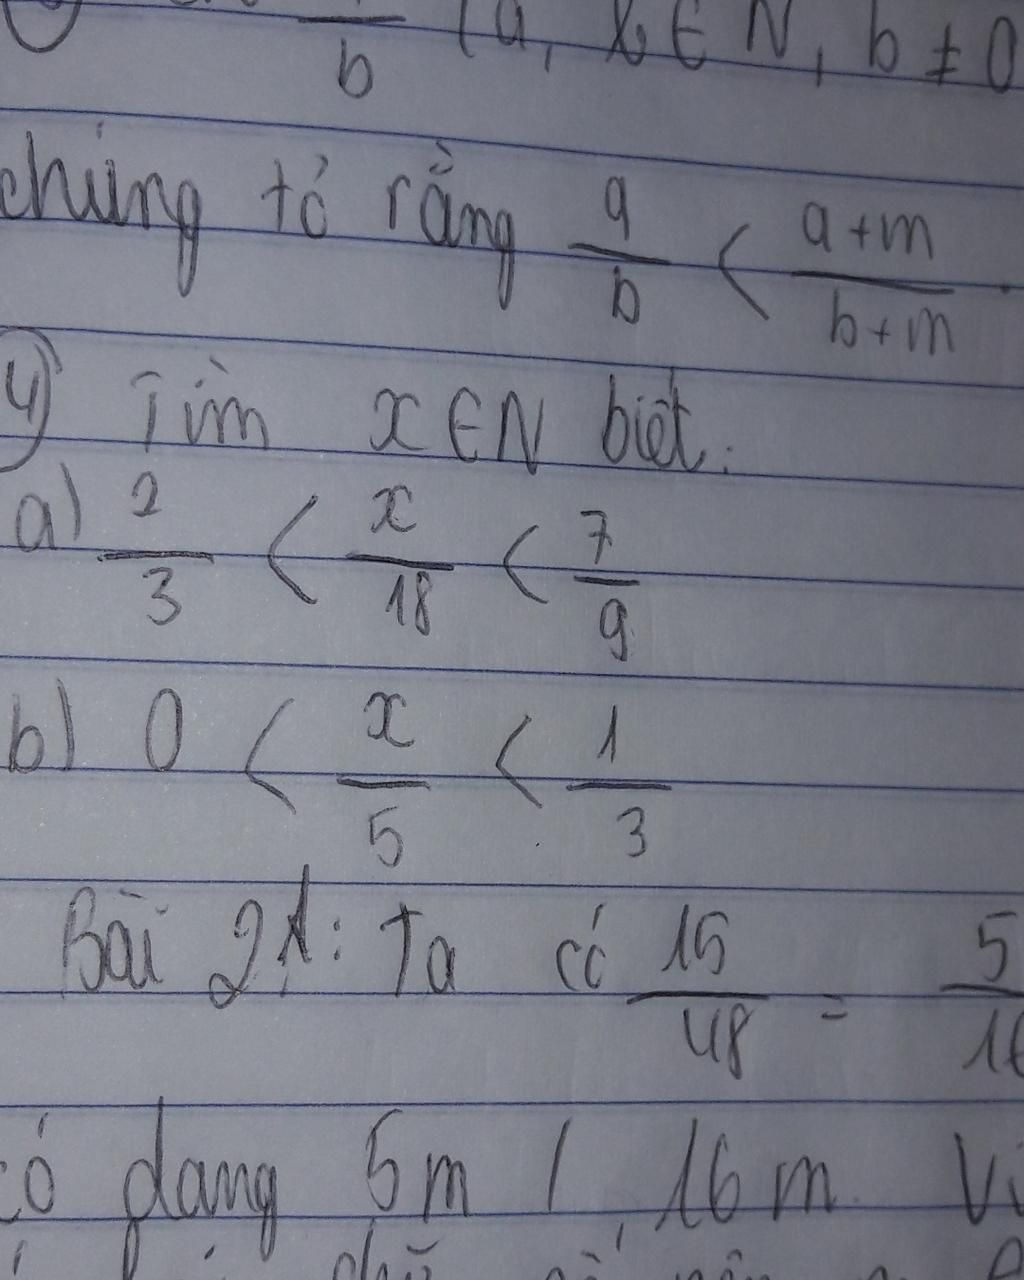 b (a, b ∈ N, b ≠ 0
chứng tỏ rằng a/b < a+m/b+m.
4) Tìm x ∈ N biết:
a) 2/3 < x/18 < 7/9
b) 0 < x/5 < 1/3
Bài 21: Ta có 15/48 = 5/16
có dạng 5m / 16m. Vì